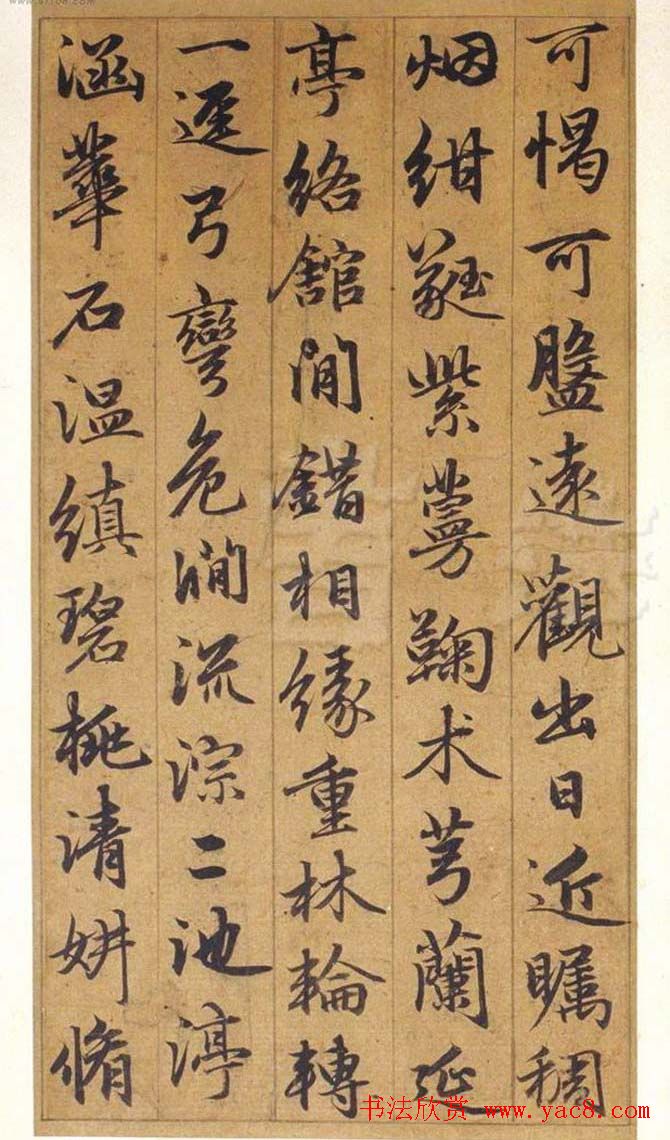 可愒可盤遠觀出日近矚稠
烟紺蕤紫蔓鞠术芎蘭延
亭絡館閒錯相緣重林輪轉
一逕弓彎危澗流淙二池渟
涵華石温縝碧桃清妍脩
书法欣赏 www.yac8.com